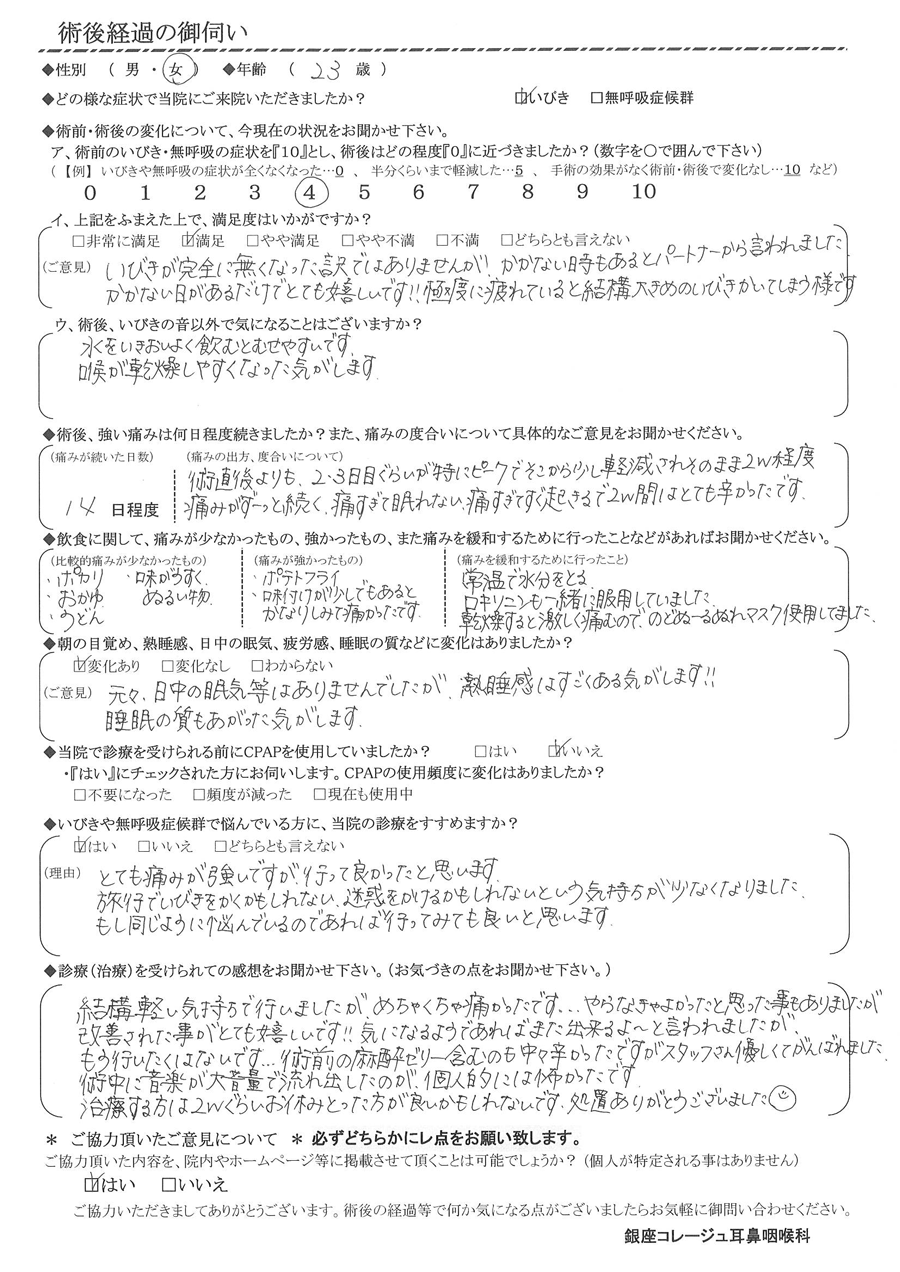 術後経過の御伺い
◆性別 ( 男 ・ 女 ) ◆年齢 ( 23 歳 )
◆どの様な症状で当院にご来院いただきましたか? ☑いびき □無呼吸症候群
◆術前・術後の変化について、今現在の状況をお聞かせ下さい。
ア、術前のいびき・無呼吸の症状を『10』とし、術後はどの程度『0』に近づきましたか?(数字を○で囲んで下さい)
(【例】 いびきや無呼吸の症状が全くなくなった…0 、 半分くらいまで軽減した…5 、 手術の効果がなく術前・術後で変化なし…10 など)
0 1 2 3 4 5 6 7 8 9 10
イ、上記をふまえた上で、満足度はいかがですか?
□非常に満足 ☑満足 □やや満足 □やや不満 □不満 □どちらとも言えない
(ご意見) いびきが完全に無くなった訳ではありませんが! かかない時もあるとパートナーから言われました
かかない日があるだけでとても嬉しいです!! 極度に疲れていると結構大きめのいびきかいてしまう様です
ウ、術後、いびきの音以外で気になることはございますか?
水をいきおいよく飲むとむせやすいです.
喉が乾燥しやすくなった気がします.
◆術後、強い痛みは何日程度続きましたか?また、痛みの度合いについて具体的なご意見をお聞かせください。
(痛みが続いた日数) (痛みの出方、度合いについて)
術直後よりも、2-3日目ぐらいが特にピークでそこから少し軽減されそのまま2w程度
14 日程度 痛みがずーっと続く、痛すぎて眠れない、痛すぎてすぐ起きるで2w間はとても辛かったです.
◆飲食に関して、痛みが少なかったもの、強かったもの、また痛みを緩和するために行ったことなどがあればお聞かせください。
(比較的痛みが少なかったもの) (痛みが強かったもの) (痛みを緩和するために行ったこと)
・ポカリ ・味がうすく、 ・ポテトフライ 常温で水分をとる.
・おかゆ ぬるい物. ・味付けが少しでもあると ロキソニンも一緒に服用していました.
・うどん かなりしみて痛かったです. 乾燥すると激しく痛むので、のどぬ〜るぬれマスク使用してました.
◆朝の目覚め、熟睡感、日中の眠気、疲労感、睡眠の質などに変化はありましたか?
☑変化あり □変化なし □わからない
(ご意見) 元々、日中の眠気等はありませんでしたが、熟睡感はすごくある気がします!!
睡眠の質もあがった気がします.
◆当院で診療を受けられる前にCPAPを使用していましたか? □はい ☑いいえ
・『はい』にチェックされた方にお伺いします。CPAPの使用頻度に変化はありましたか?
□不要になった □頻度が減った □現在も使用中
◆いびきや無呼吸症候群で悩んでいる方に、当院の診療をすすめますか?
☑はい □いいえ □どちらとも言えない
(理由) とても痛みが強いですが、行って良かったと思います.
旅行でいびきをかくかもしれない、迷惑をかけるかもしれないという気持ちが少なくなりました.
もし同じように悩んでいるのであれば行ってみても良いと思います.
◆診療(治療)を受けられての感想をお聞かせ下さい。(お気づきの点をお聞かせ下さい。)
結構軽い気持ちで行いましたが、めちゃくちゃ痛かったです... やらなきゃよかったと思った事もありましたが
改善された事がとても嬉しいです!! 気になるようであればまた出来るよ〜と言われましたが、
もう行いたくはないです... 術前の麻酔ゼリー含むのも中々辛かったですがスタッフさん優しくてがんばれました.
術中に音楽が大音量で流れ出したのが、個人的には怖かったです.
治療する方は2wぐらいお休みとった方が良いかもしれないです. 処置ありがとうございました
* ご協力頂いたご意見について * 必ずどちらかにレ点をお願い致します。
ご協力頂いた内容を、院内やホームページ等に掲載させて頂くことは可能でしょうか?(個人が特定される事はありません)
☑はい □いいえ
ご協力いただきましてありがとうございます。術後の経過等で何か気になる点がございましたらお気軽に御問い合わせください。
銀座コレージュ耳鼻咽喉科